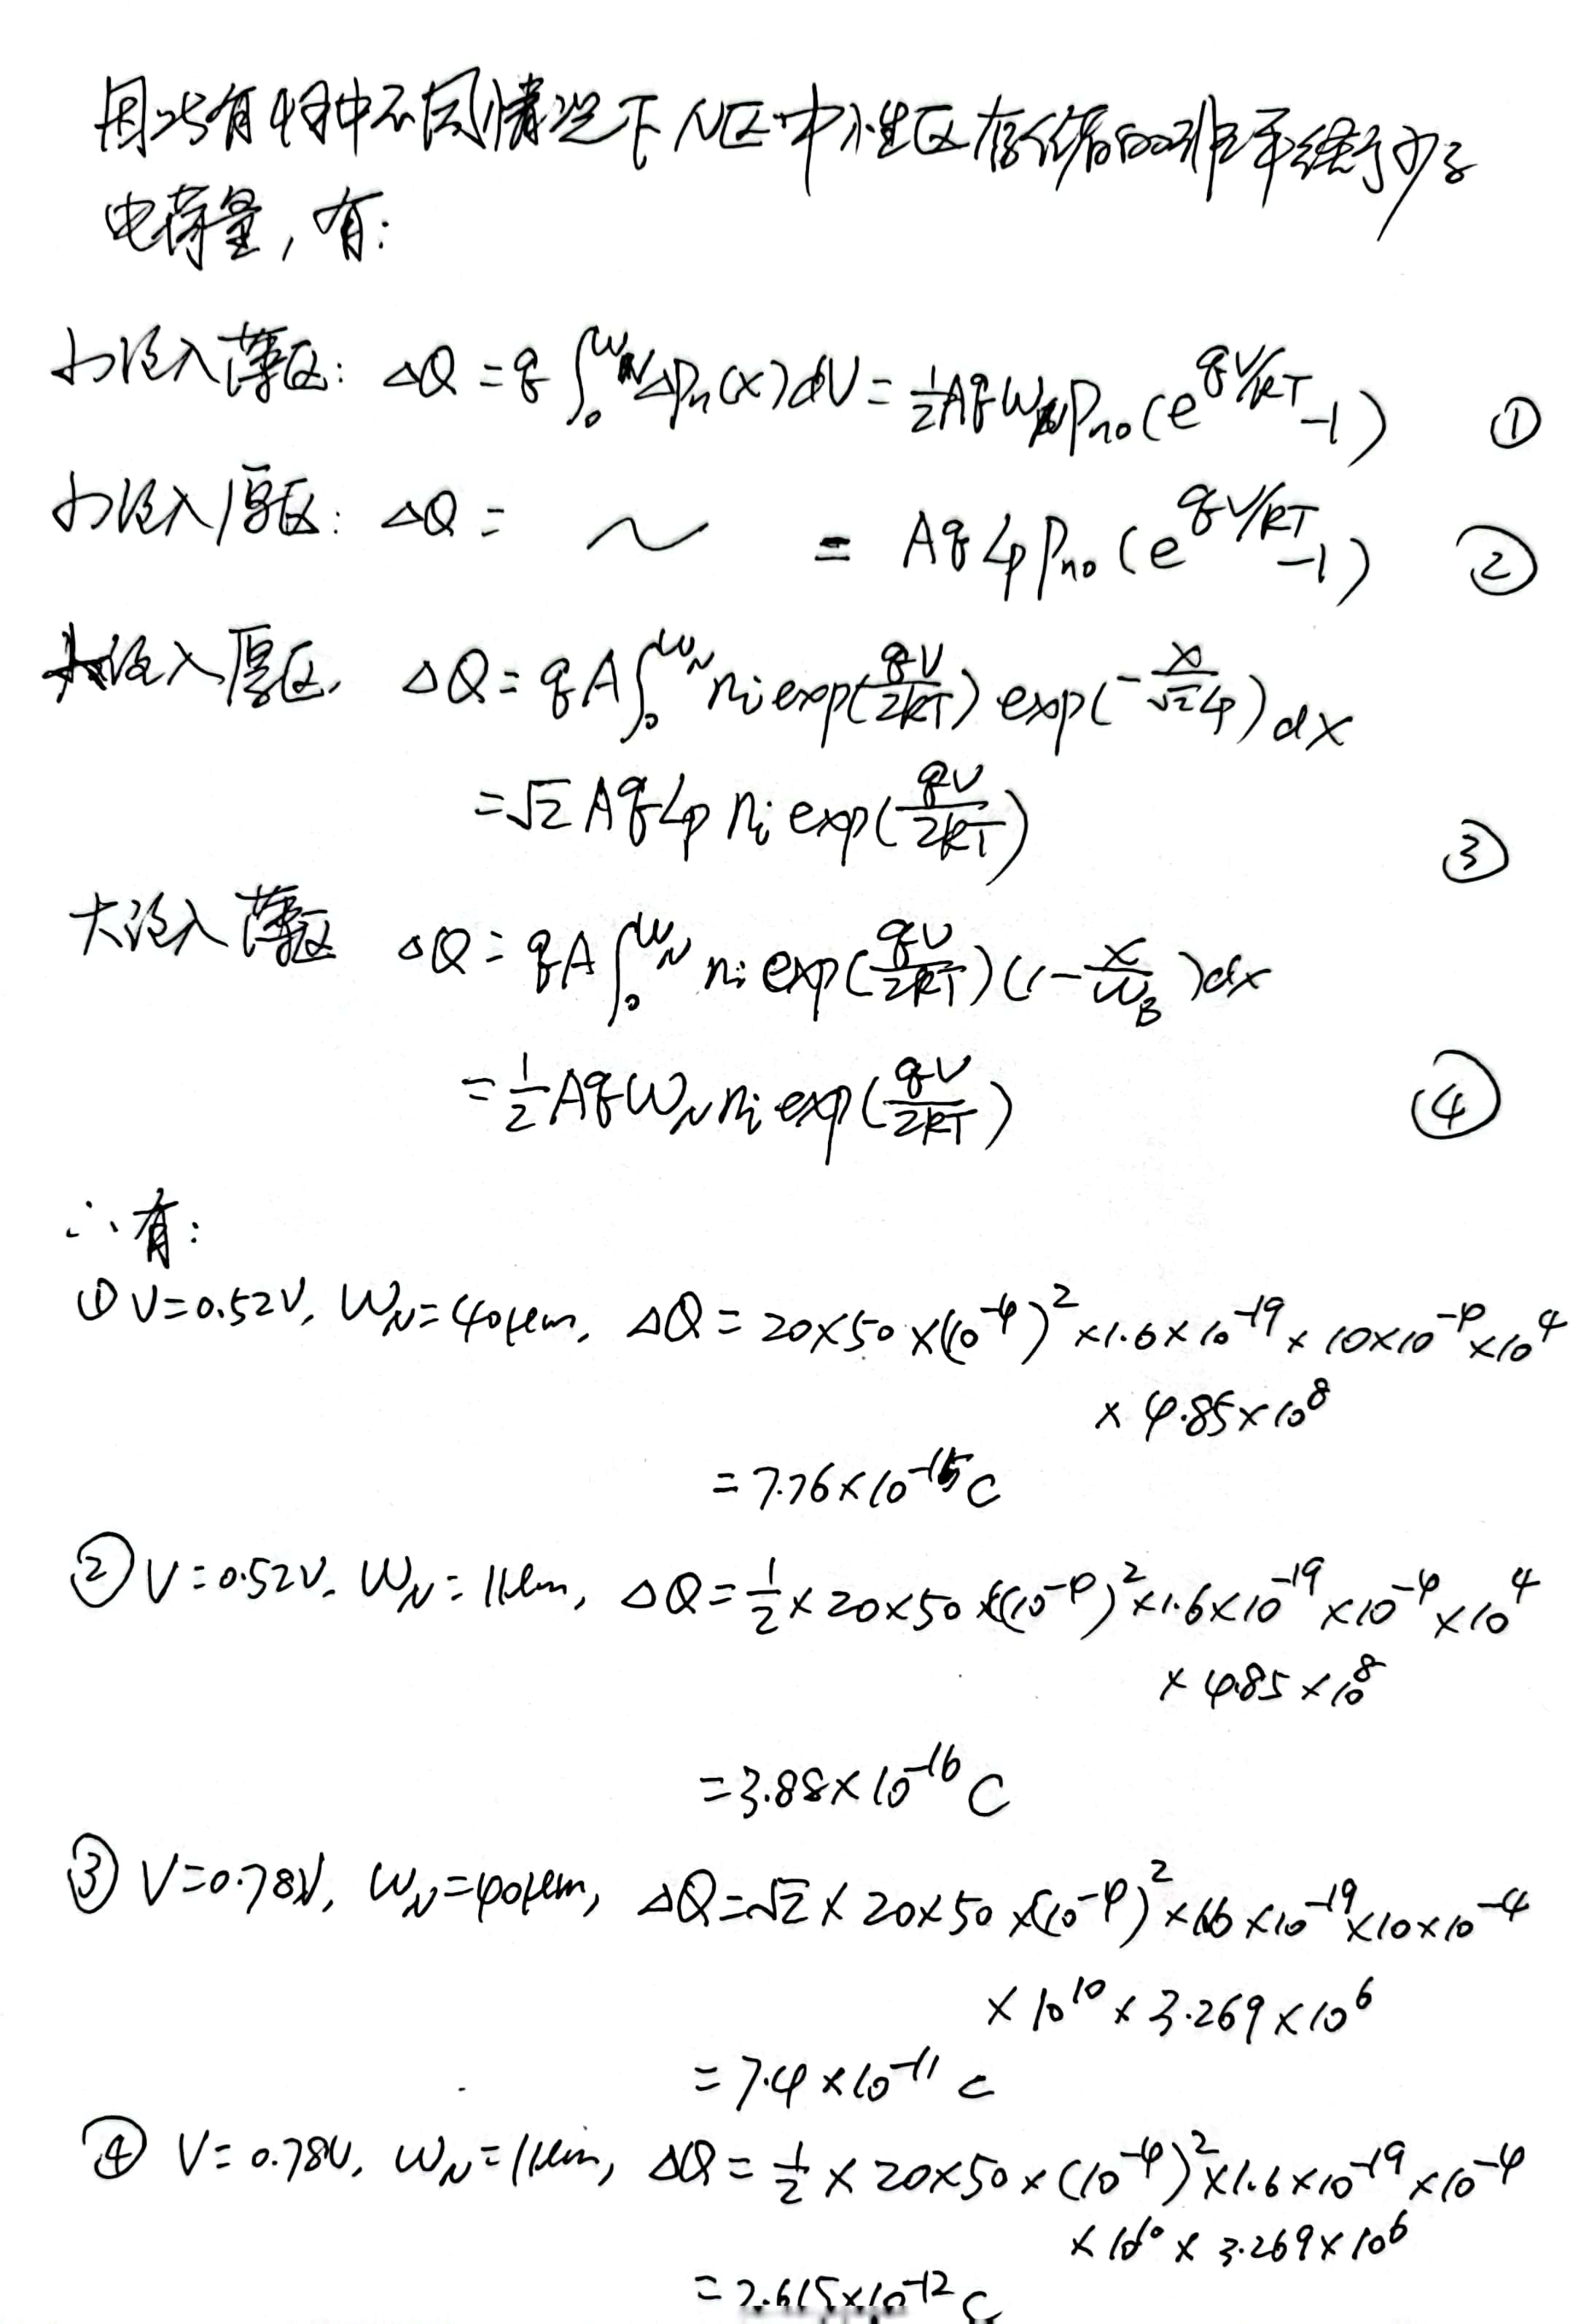 因此有4种不同情况下N区中性区存储的非平衡少子
电荷量,有:
小注入薄区: ΔQ = q∫₀^{W_N} Δp_n(x)dV = 1/2 AqW_N p_{n0}(e^{qV/kT}-1) ①
小注入厚区: ΔQ = ~ = AqL_p p_{n0}(e^{qV/kT}-1) ②
大注入厚区, ΔQ = qA∫₀^{W_N} n_i exp(qV/2kT) exp(-x/√2L_p)dx
=√2 AqL_p n_i exp(qV/2kT) ③
大注入薄区 ΔQ = qA∫₀^{W_N} n_i exp(qV/2kT)(1-x/W_B)dx
=1/2 AqW_N n_i exp(qV/2kT) ④
∴有:
① V=0.52V, W_N=40μm, ΔQ = 20×50×(10^{-4})²×1.6×10^{-19}×10×10^{-4}×10^4
×4.85×10^8
=7.76×10^{-15}C
② V=0.52V, W_N=1μm, ΔQ = 1/2×20×50×(10^{-4})²×1.6×10^{-19}×10^{-4}×10^4
×4.85×10^8
=3.88×10^{-16}C
③ V=0.78V, W_N=40μm, ΔQ=√2×20×50×(10^{-4})²×1.6×10^{-19}×10×10^{-4}
×10^{10}×3.269×10^6
=7.4×10^{-11}C
④ V=0.78V, W_N=1μm, ΔQ = 1/2×20×50×(10^{-4})²×1.6×10^{-19}×10^{-4}
×10^{10}×3.269×10^6
=2.615×10^{-12}C